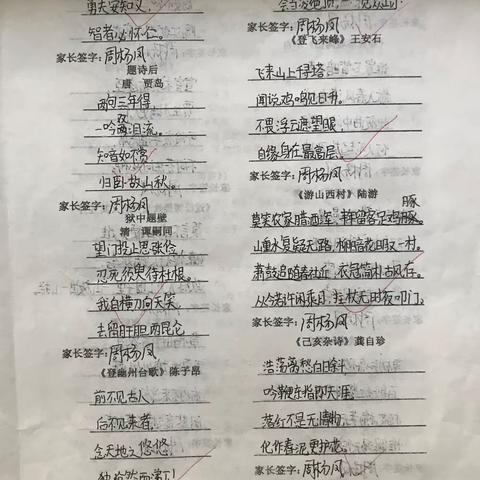 勇夫安知义，
智者必怀仁。
家长签字：周杨凤
题诗后
唐 贾岛
两句三年得
一吟双泪流。
知音如不赏
归卧故山秋。
家长签字：周杨凤
狱中题壁
清 谭嗣同
望门投止思张俭，
忍死须臾待杜根。
我自横刀向天笑，
去留肝胆两昆仑
家长签字：周杨凤
《登幽州台歌》陈子昂
前不见古人
后不见来者
念天地之悠悠
独怆然而涕下
会当凌绝顶，一览众山小
家长签字：周杨凤
《登飞来峰》王安石
飞来山上千寻塔
闻说鸡鸣见日升。
不畏浮云遮望眼
自缘身在最高层
家长签字：周杨凤
《游山西村》陆游
莫笑农家腊酒浑，丰年留客足鸡豚。
豚
山重水复疑无路，柳暗花明又一村。
萧鼓追随春社近，衣冠简朴古风存。
从今若许闲乘月，拄杖无时夜叩门。
家长签字：周杨凤
《己亥杂诗》龚自珍
浩荡离愁白日斜
吟鞭东指即天涯
落红不是无情物
化作春泥更护花。
家长签字：周杨凤